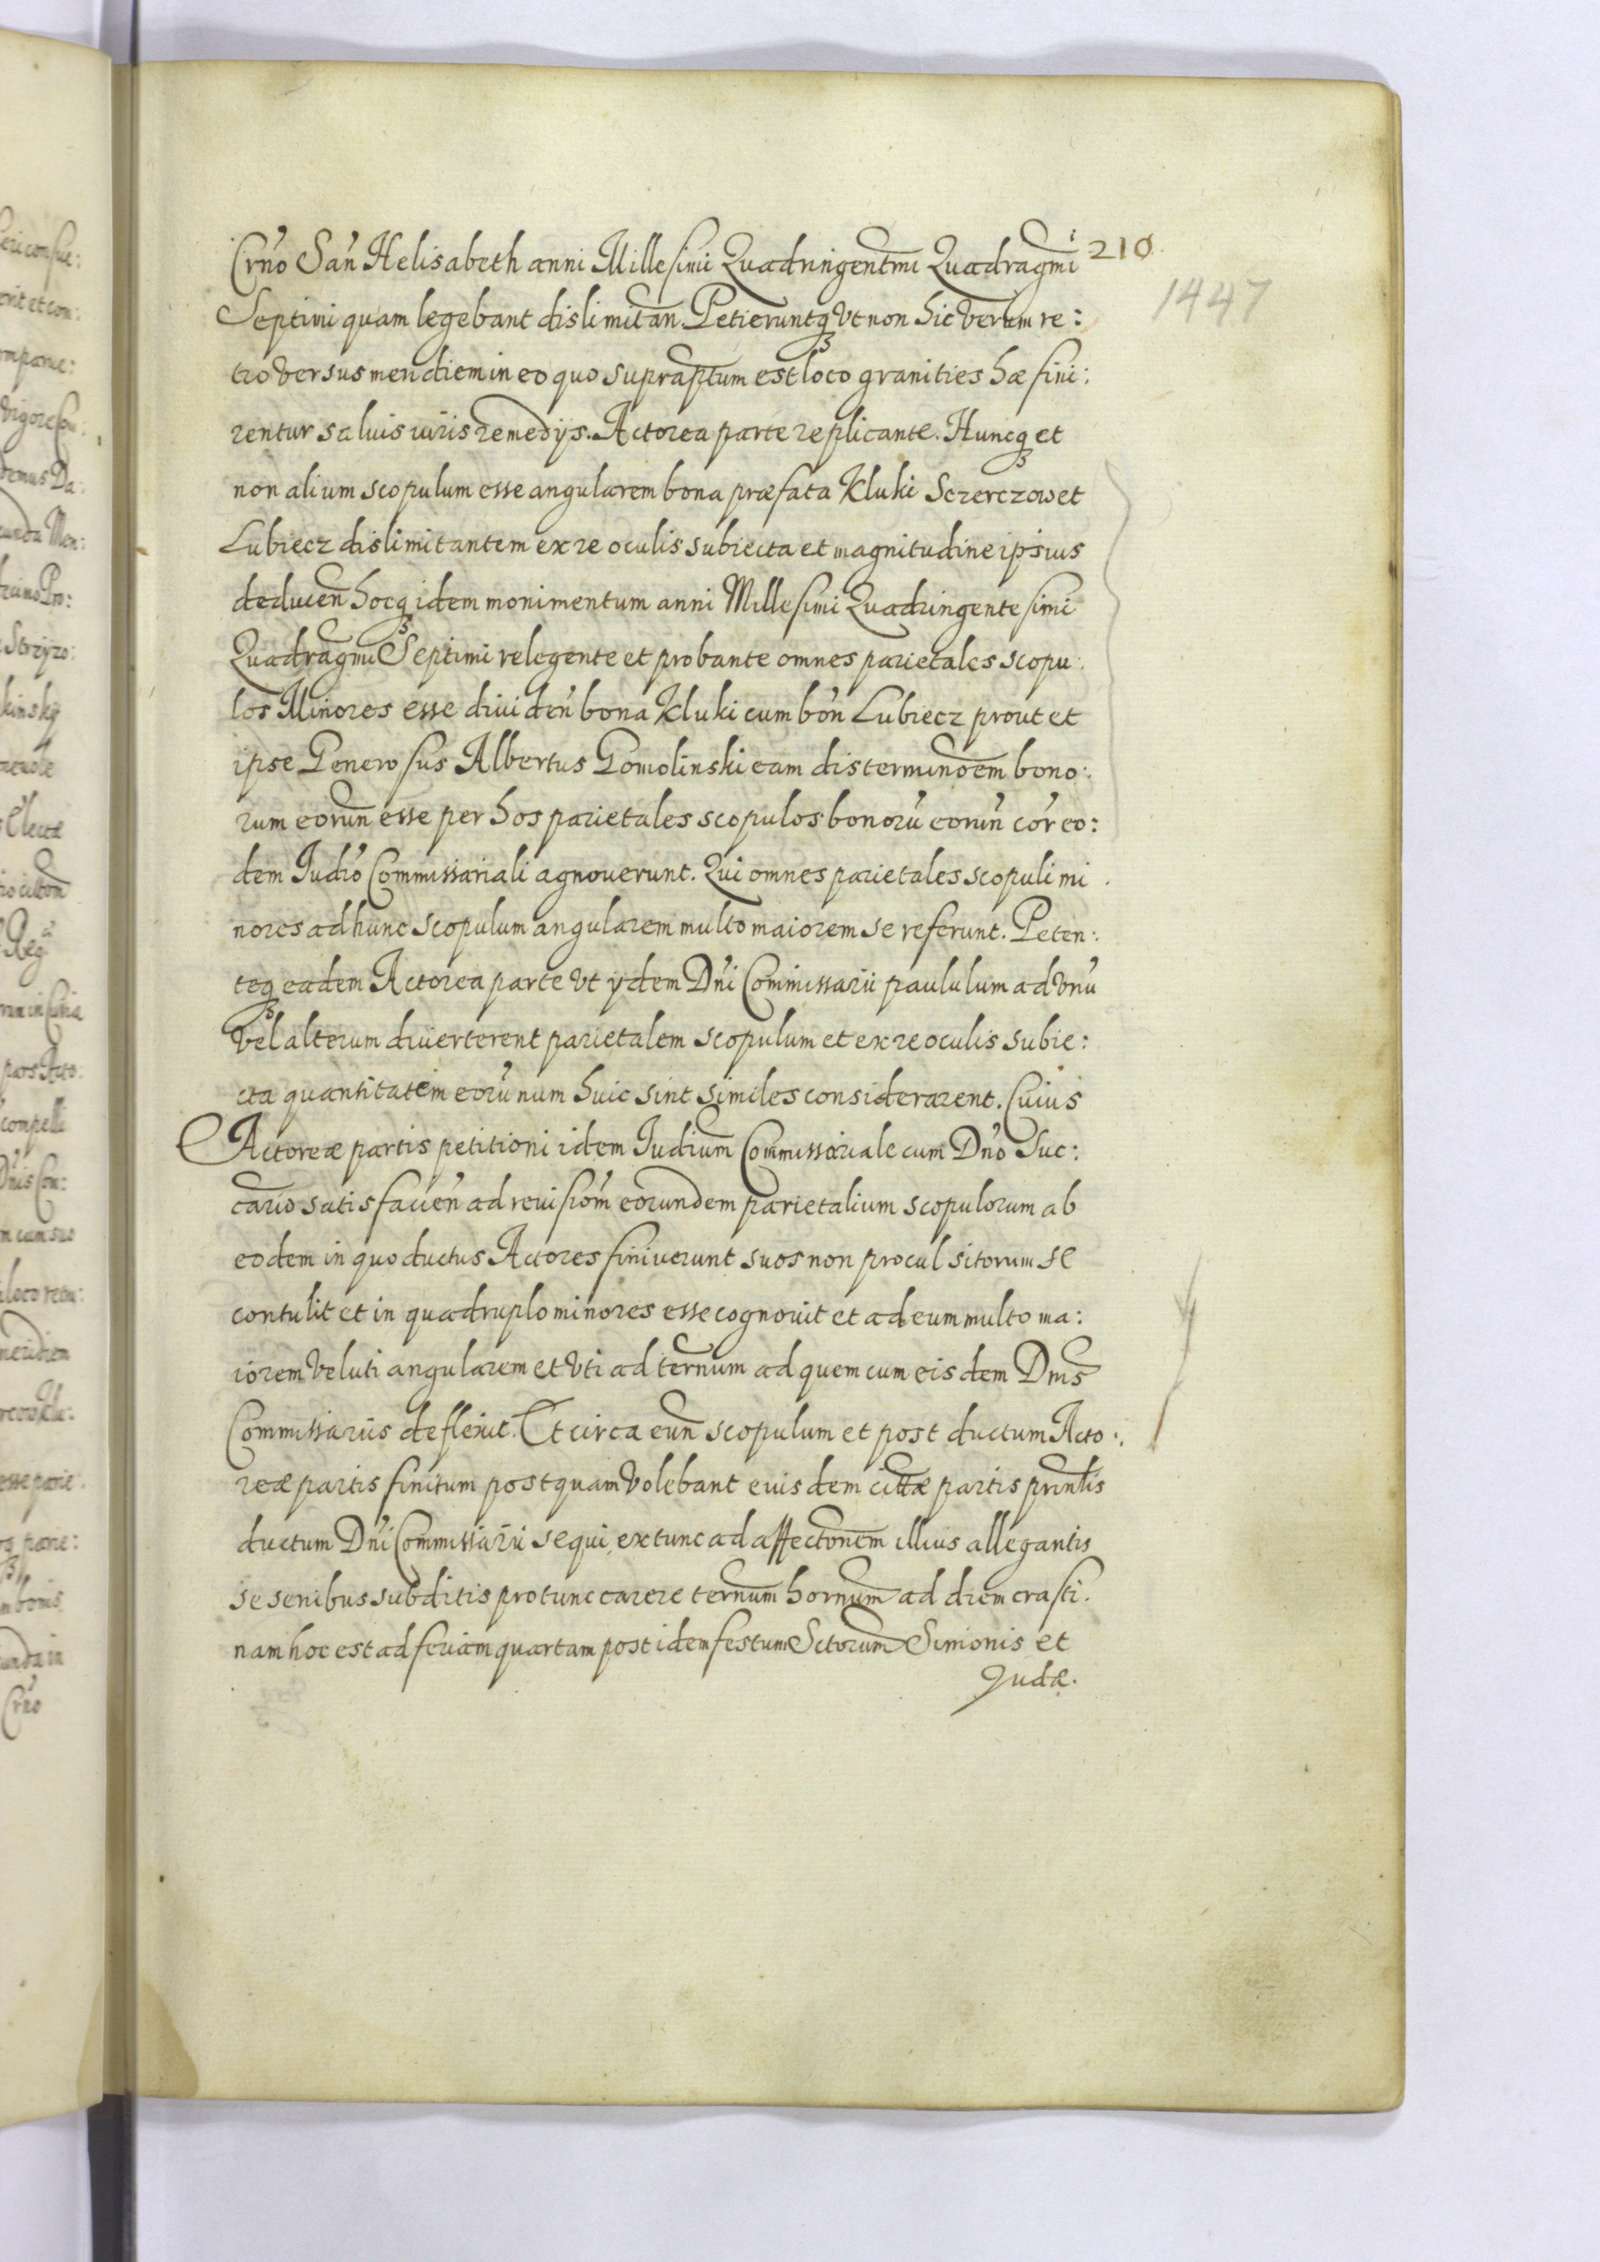 210
1447
Cr̃no San̄ Helisabeth anni Millesimi Quadringentm̄i Quadragm̄i
Septimi quam legebant dislimitan̄ Petieruntqꝫ Vt non hic verum re:
tro versus meridiem in eo quo supraptum est loco granities hæ fini:
rentur saluis iuris remedÿs. Actorea parte replicante. Huncqꝫ et
non alium scopulum esse angularem bona præfata Kluki Sczerczow et
Lubiecz dislimitantem ex re oculis subiecta et magnitudine ipsius
deducen̄ hocqꝫ idem monimentum anni Millesimi Quadringentesimi
Quadragm̄i Septimi relegente et probante omnes parietales scopu:
los Minores esse diuiden̄ bona Kluki cum bon̄ Lubiecz prout et
ipse Generosus Albertus Gomolinski eam disterminoem̄ bono:
rum eorun̄ esse per hos parietales scopulos bonorū eorun̄ cor̄ eo:
dem Judio̅ Commissariali agnouerunt. Qui omnes parietales scopuli mi:
nores ad hunc scopulum angularem multo maiorem se referunt. Peten:
teqꝫ eadem Actorea parte Vt ÿdem Dn̄i Commissarii paululum ad Vnū
Vel alterum diuerterent parietalem scopulum et ex re oculis subie:
cta quantitatem eorū num huic sint similes considerarent. Cuius
Actoreæ partis petitioni idem Judium̄ Commissariale cum Dn̄o Suc:
cario̅ satisfacien̄ ad reuisiom̄ eorundem parietalium scopulorum ab
eodem in quo ductus Actores finiuerunt suos non procul sitorum se
contulit et in quadruplo minores esse cognouit et ad eum multo ma:
iorem Veluti angularem et Vti ad ternum ad quem cum eisdem Dnis̄
Commissariis deflexit. Et circa eun̄ scopulum et post ductum Acto:
reæ partis finitum postquam Volebant euisdem cittæ partis prinlis̄
ductum Dn̄i Commissarii sequi extunc ad affectonem̄ illius allegantis
se senibus subditis protunc carere ternum̄ hornum̄ ad diem crasti:
nam hoc est ad feriam quartam post idem festum Sctorum̄ Simonis et
Judæ.